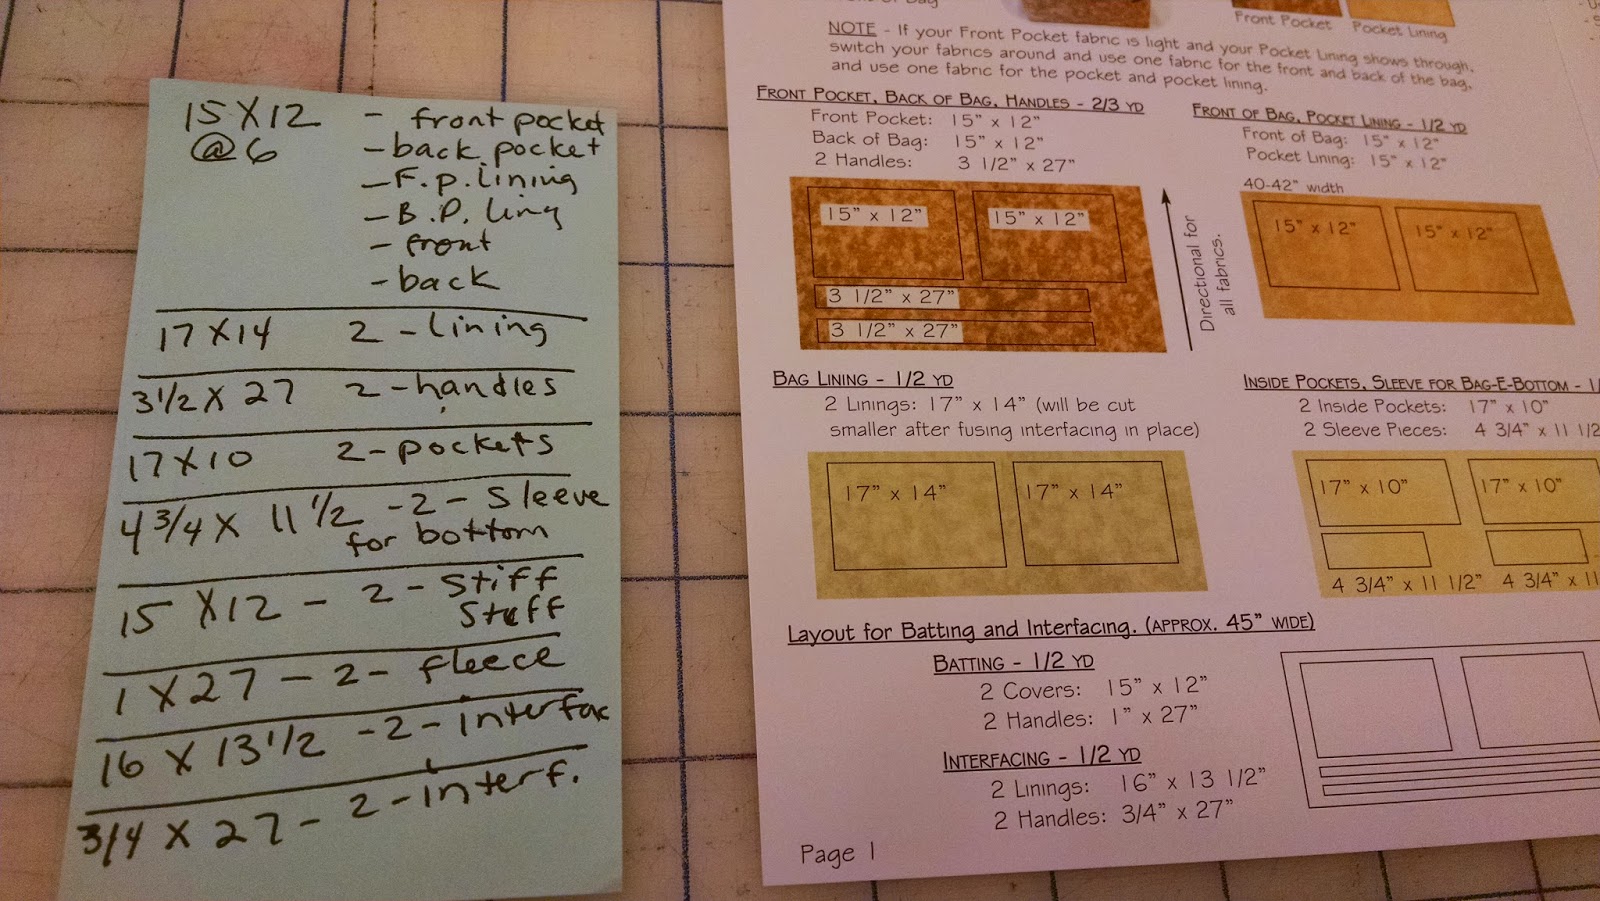 15 X 12 - front pocket
@ 6 - back pocket
- F.p. lining
- B.P. ling
- front
- back
17 X 14 2 - lining
3 1/2 X 27 2 - handles
17 X 10 2 - pockets
4 3/4 X 11 1/2 - 2 - Sleeve
for bottom
15 X 12 - 2 - Stiff
Stuff
1 X 27 - 2 - fleece
16 X 13 1/2 - 2 - interfac
3/4 X 27 - 2 - interf.
Bag
Front Pocket Pocket Lining
NOTE - If your Front Pocket fabric is light and your Pocket Lining shows through,
switch your fabrics around and use one fabric for the front and back of the bag,
and use one fabric for the pocket and pocket lining.
FRONT POCKET, BACK OF BAG, HANDLES - 2/3 YD
Front Pocket: 15" x 12"
Back of Bag: 15" x 12"
2 Handles: 3 1/2" x 27"
15" x 12" 15" x 12"
3 1/2" x 27"
3 1/2" x 27"
Directional for
all fabrics.
FRONT OF BAG, POCKET LINING - 1/2 YD
Front of Bag: 15" x 12"
Pocket Lining: 15" x 12"
40-42" width
15" x 12" 15" x 12"
BAG LINING - 1/2 YD
2 Linings: 17" x 14" (will be cut
smaller after fusing interfacing in place)
17" x 14" 17" x 14"
INSIDE POCKETS, SLEEVE FOR BAG-E-BOTTOM - 1/
2 Inside Pockets: 17" x 10"
2 Sleeve Pieces: 4 3/4" x 11 1/2
17" x 10" 17" x 10"
4 3/4" x 11 1/2" 4 3/4" x 11
Layout for Batting and Interfacing. (APPROX. 45" WIDE)
BATTING - 1/2 YD
2 Covers: 15" x 12"
2 Handles: 1" x 27"
INTERFACING - 1/2 YD
2 Linings: 16" x 13 1/2"
2 Handles: 3/4" x 27"
Page 1